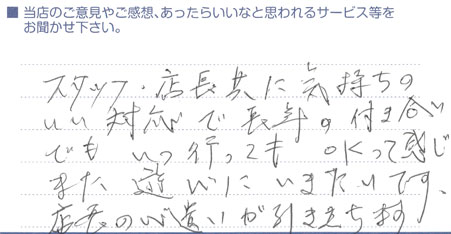 ■ 当店のご意見やご感想、あったらいいなと思われるサービス等を
お聞かせ下さい。
スタッフ・店長共に気持ちの
いい対応で長年の付き合い
でもいつ行っても OKって感じ
また遊びにいきたいです、
店長の心遣いが引き立ちます